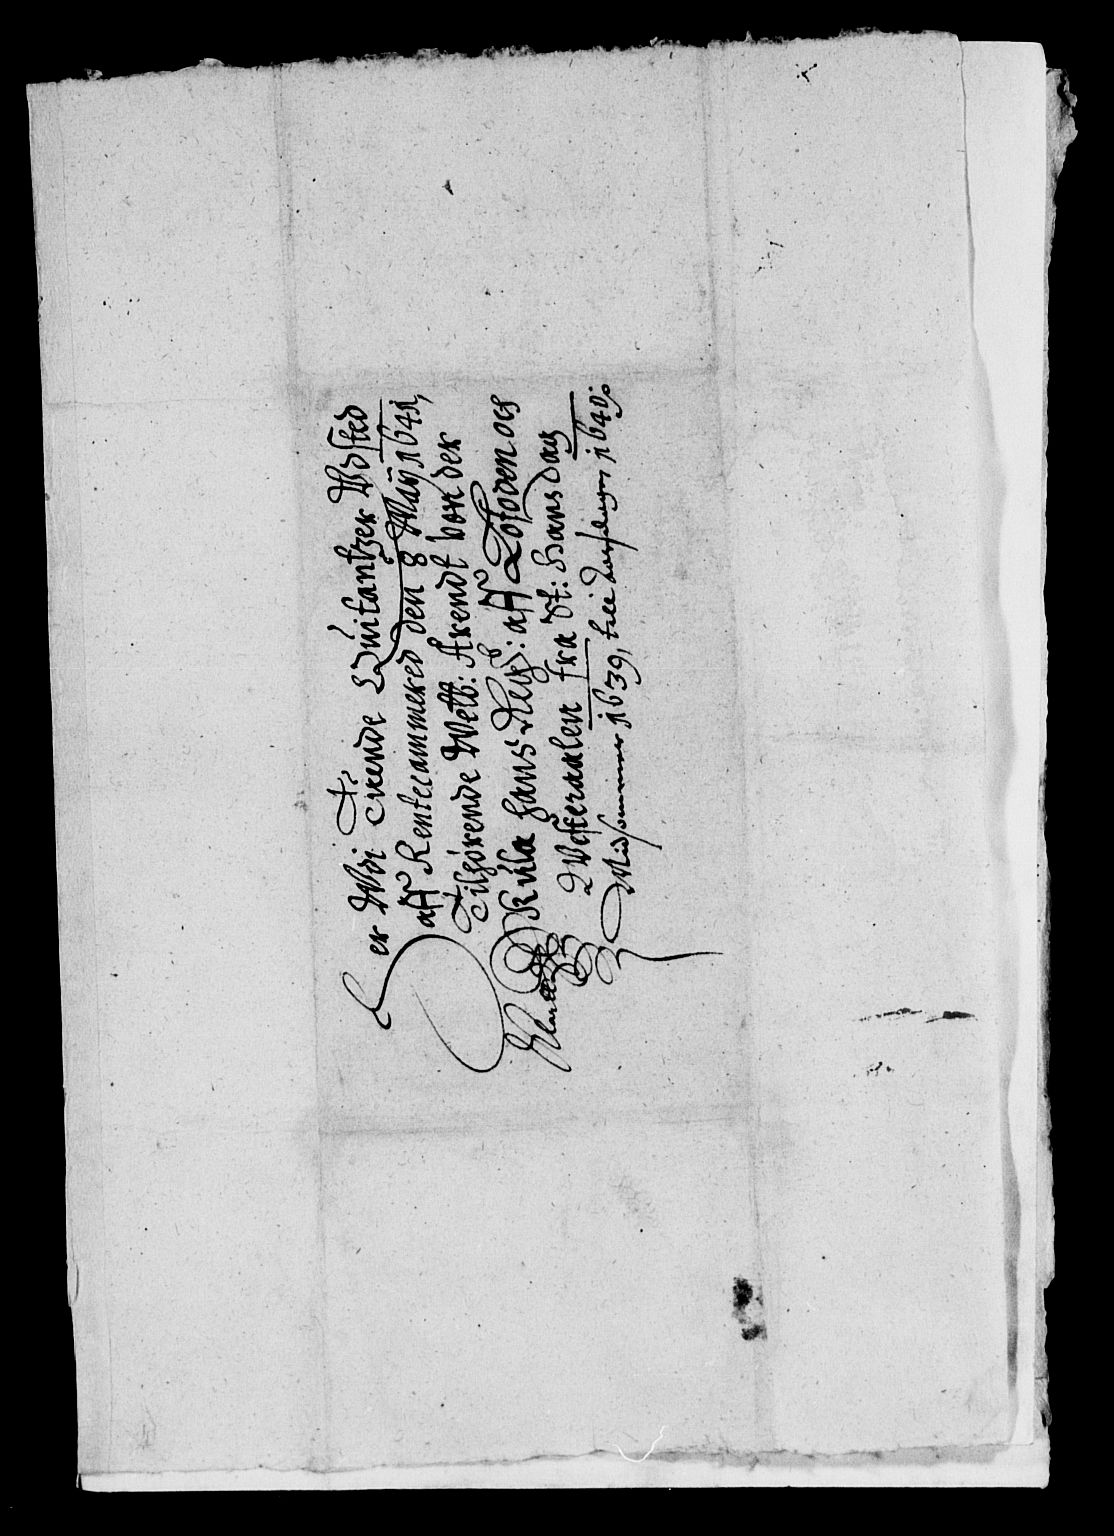 er Wdi Tuende Quitantzer Udsted
aff Rentecammered den 8 Maÿ 1641,
Tilhörende Welb: Arendt von der
Kula hans Regsb: aff Lofoden och
Westeraalen fra St: Hans dag
Midsommer 1639, til Aarsdagen 1640: